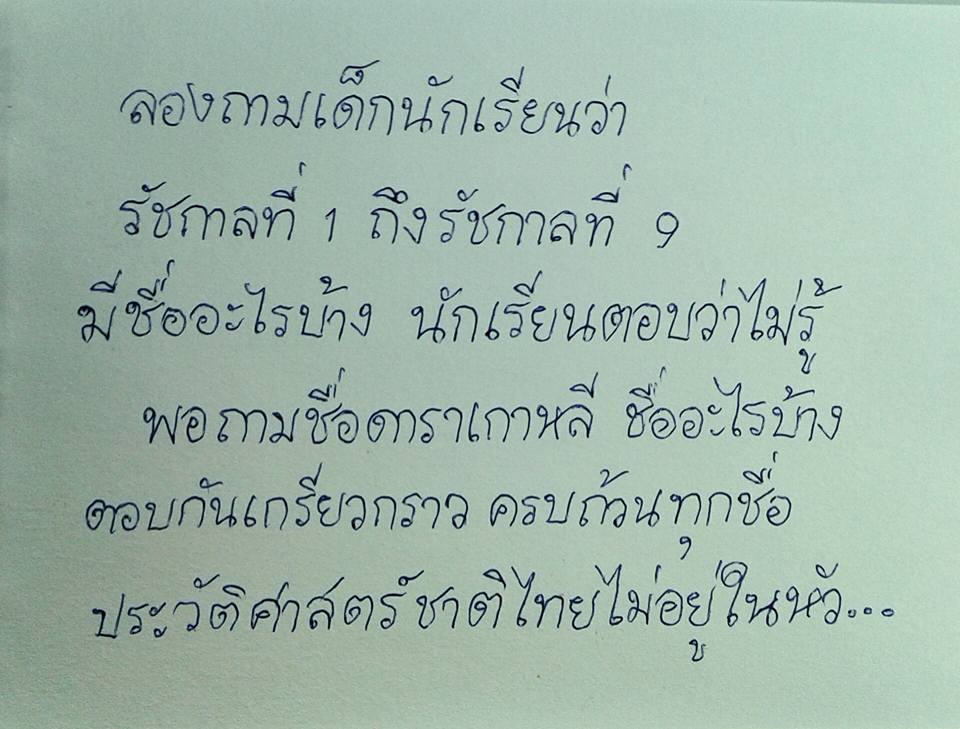 ลองถามเด็กนักเรียนว่า
รัชกาลที่ 1 ถึงรัชกาลที่ 9
มีชื่ออะไรบ้าง นักเรียนตอบว่าไม่รู้
พอถามชื่อดาราเกาหลี ชื่ออะไรบ้าง
ตอบกันเกรียวกราว ครบถ้วนทุกชื่อ
ประวัติศาสตร์ชาติไทยไม่อยู่ในหัว...